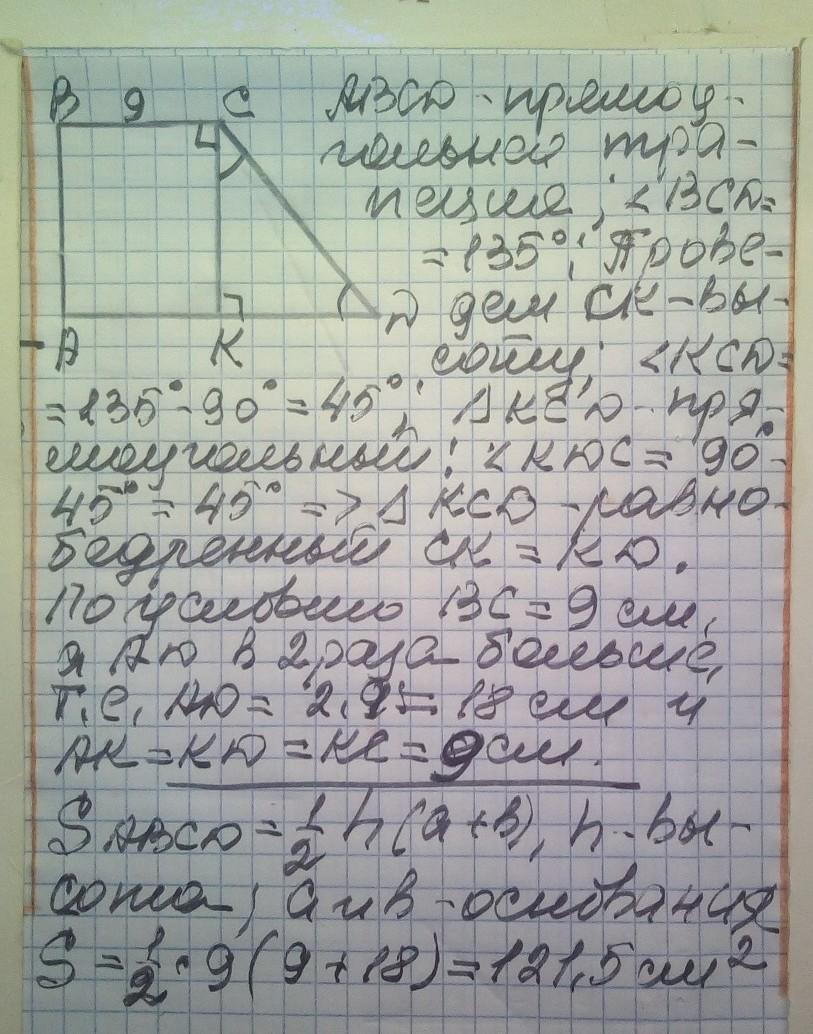 B 9 C
ABCD - прямоу-
гольная тра-
пеция; <BCD=
=135°; Прове-
A K D
дем CK - вы-
соту; <KCD=
=135°-90°=45°; ΔKCD - пря-
моугольный; <KDC = 90°-
45° = 45° => ΔKCD - равно-
бедренный CK = KD.
По условию BC = 9 см,
а AD в 2 раза больше,
т.е. AD = 2.9 = 18 см и
AK = KD = KC = 9 см.
S ABCD = 1/2 h(a+b), h - вы-
сота; a и b - основания
S = 1/2 · 9(9+18) = 121,5 см²